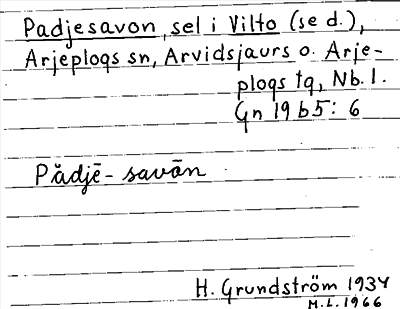 Padjesavon, sel i Vilto (se d.),
Arjeplogs sn, Arvidsjaurs o. Arje-
plogs tg, Nb. l.
Gn 19 b5: 6
Pădjē- savōn
H. Grundström 1934
M.L. 1966